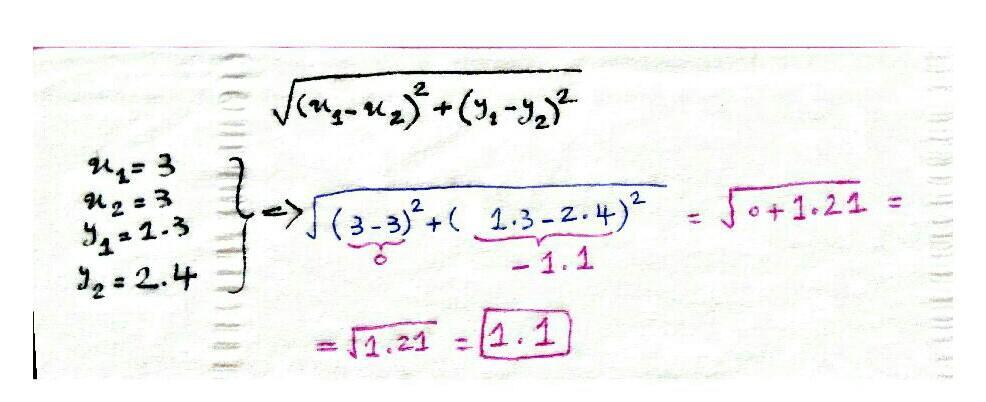 √((x₁-x₂)²+(y₁-y₂)²)
x₁=3
x₂=3
y₁=1.3
y₂=2.4
} => √((3-3)²+(1.3-2.4)²) = √0+1.21 =
0 -1.1
= √1.21 = 1.1